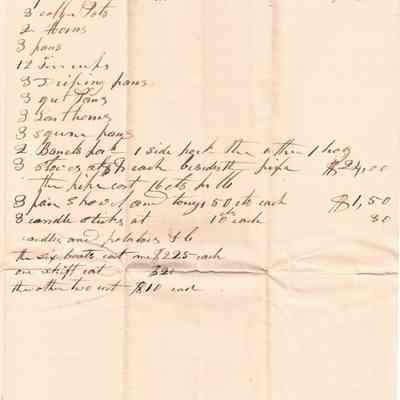 3 coffee Pots
2 Horns
3 pans
12 Tin cups
3 Driping pans
3 qut pans
3 Lanterns
3 square pans
2 Barrels pork 1 side pork the other 1 hog
3 stoves at $8 each besides the pipe $24,00
the pipe cost 16 cts pr lb
3 pair shovel and tongs 50 cts each $1,50
8 candle sticks at 10 cts each 80
candles and potatoes $6
the six boats cost one $225 each
one skift cost $20
the other two cost $10 each